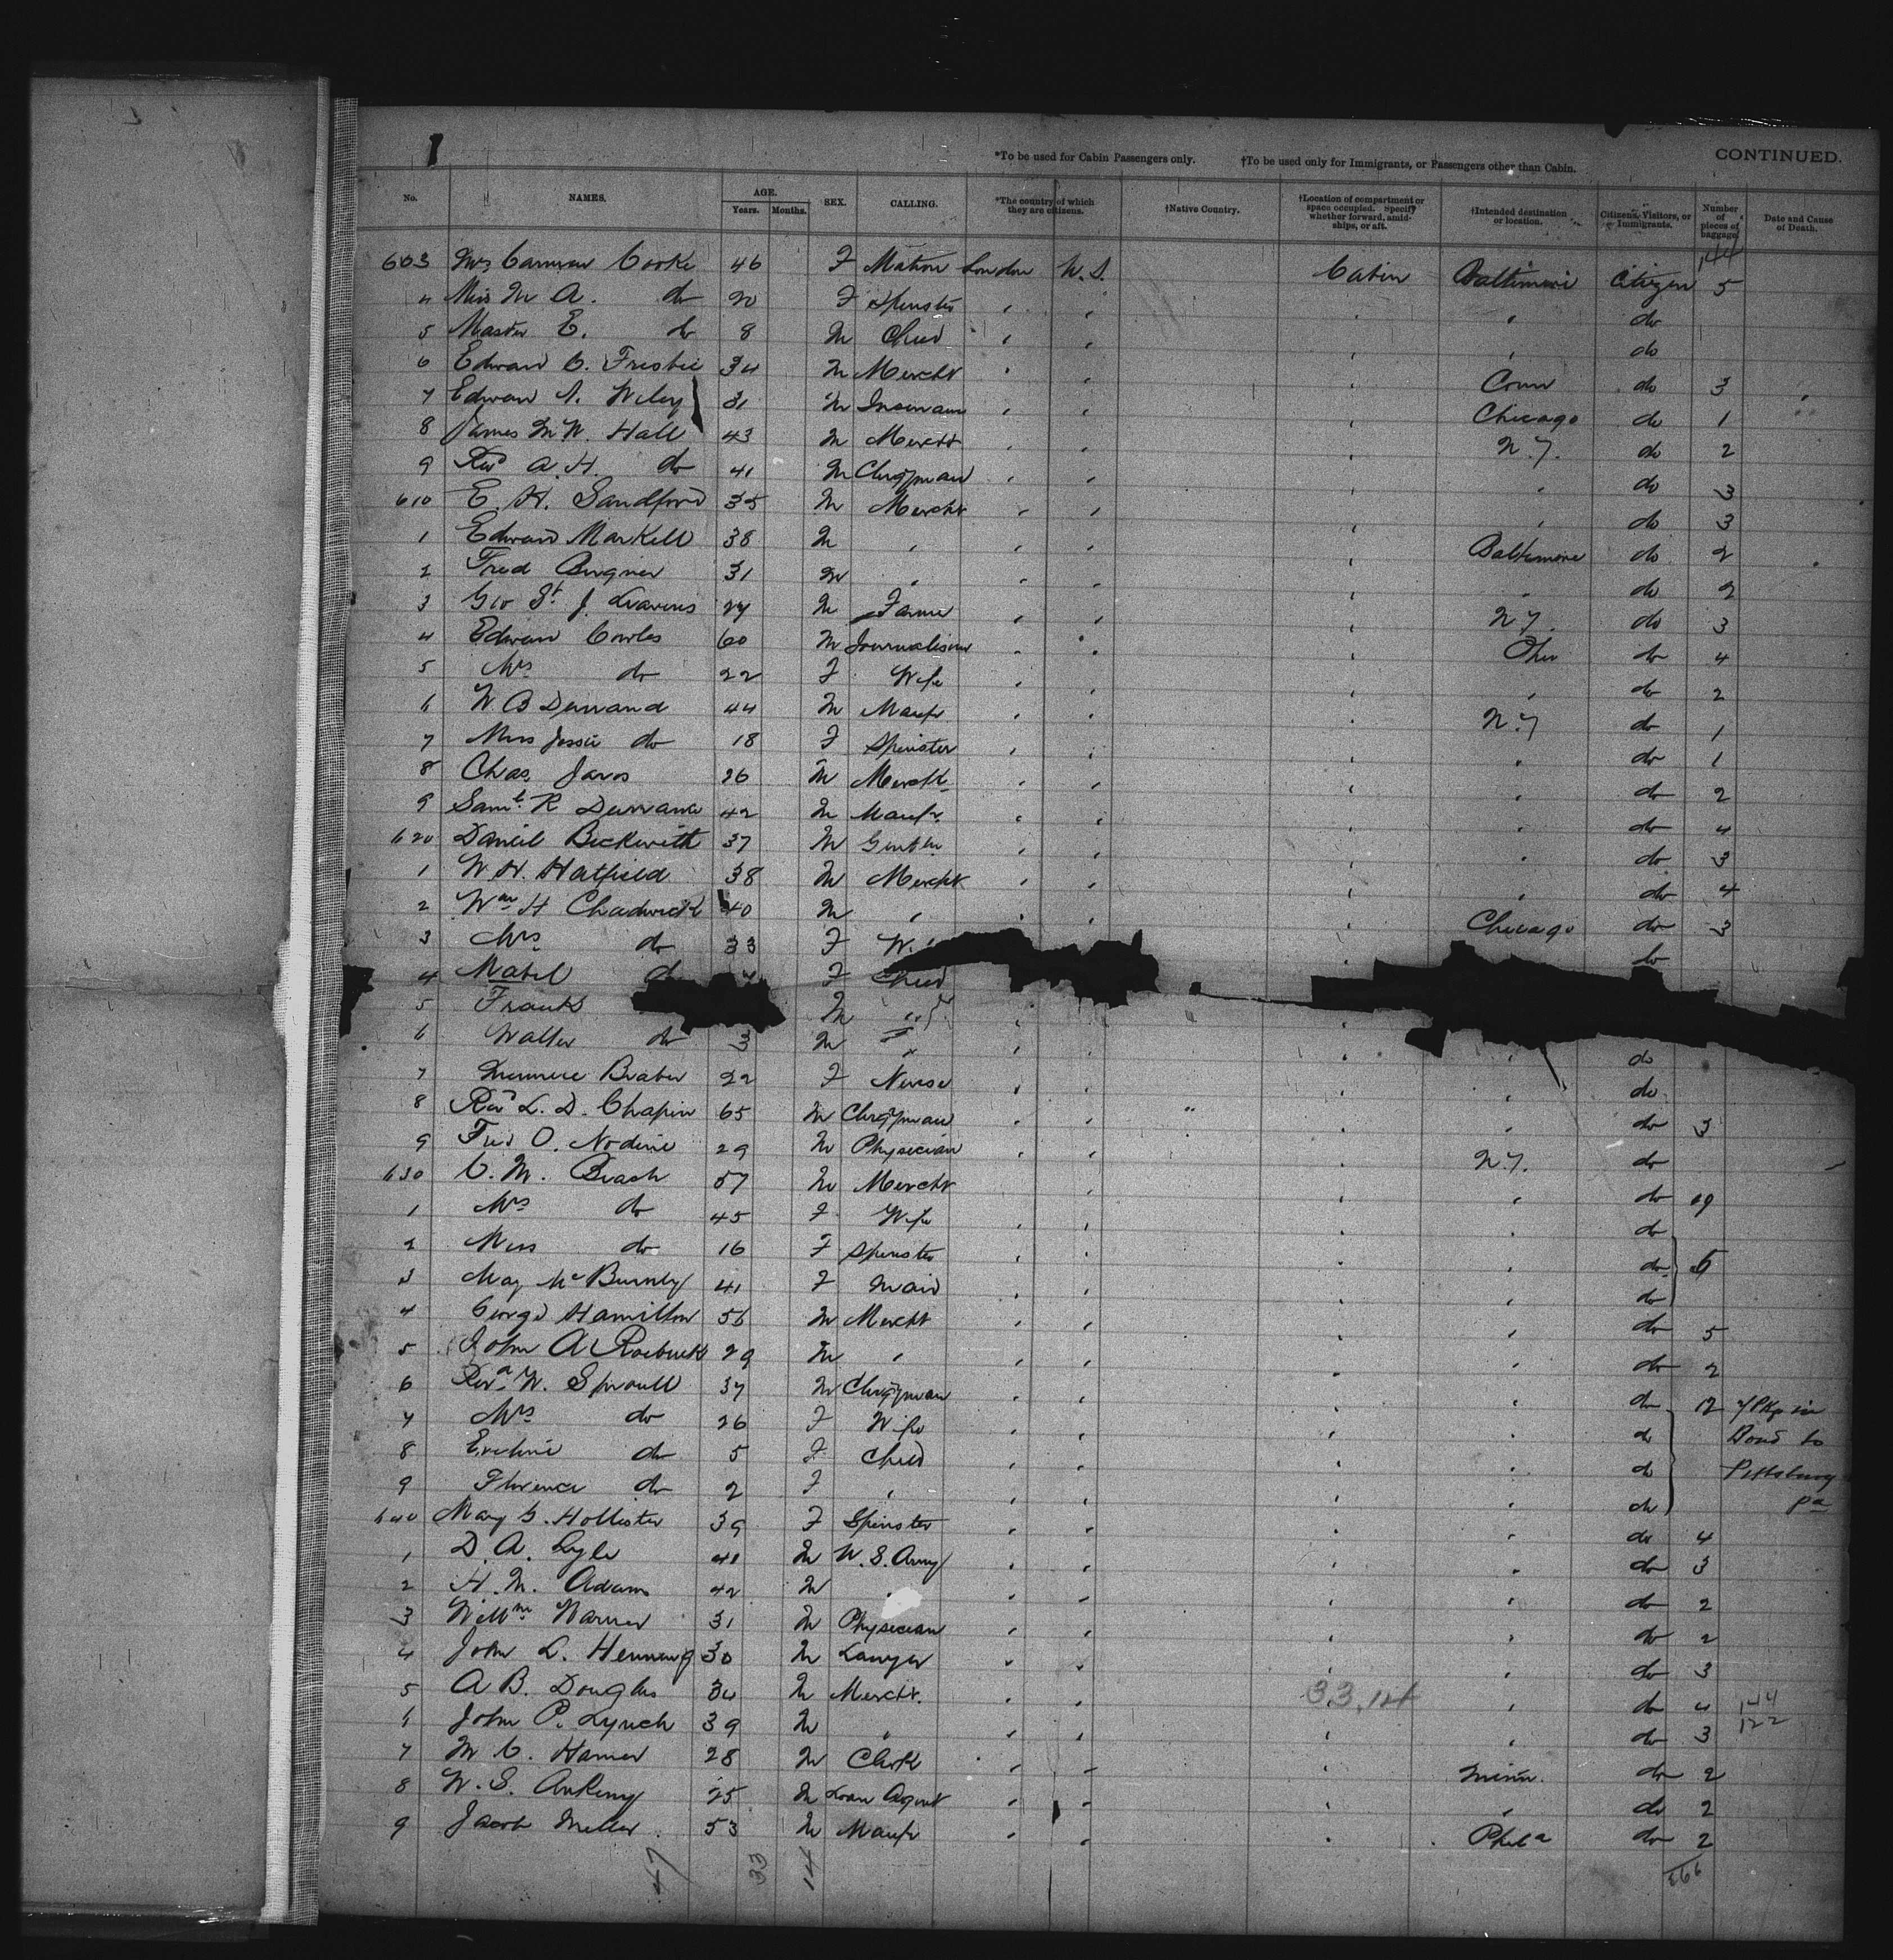 *To be used for Cabin Passengers only. †To be used only for Immigrants, or Passengers other than Cabin. CONTINUED.
No. NAMES. AGE. Years. Months. SEX. CALLING. *The country of which they are citizens. †Native Country. †Location of compartment or space occupied. Specify whether forward, amid-ships, or aft. †Intended destination or location. Citizens, Visitors, or Immigrants. Number of pieces of baggage. Date and Cause of Death.
144
603 Mrs Cooke 46 F Matron London U.S. Cabin Baltimore Citizen 5
4 Miss M A. do 20 F Spinster " " " " do
5 Master E. do 8 M Child " " " " do
6 Edward C. Frisbie 34 M Mercht " " " Conn do 3
7 Edward N. Wiley 31 M " " " Chicago do 1
8 James M W. Hall 43 M Mercht " " " N.Y. do 2
9 Revd A. H. do 41 M Clergyman " " " " do 3
610 E. H. Sandford 35 M Mercht " " " " do 3
1 Edward Markell 38 M " " " " Baltimore do 2
2 Fred 31 M " " " " " do 2
3 Geo St. J. Leavens 27 M Farmer " " " N.Y. do 3
4 Edwin Cowles 60 M Journalism " " " Ohio do 4
5 Mrs do 22 F Wife " " " " do 2
6 W B Durrand 44 M Manfr " " " N.Y do 1
7 Miss Jessie do 18 F Spinster " " " " do 1
8 Chas. Jaros 26 M Mercht " " " " do 2
9 Saml R Durrand 42 M Manfr " " " " do 4
620 Daniel Beckwith 37 M Gentln " " " " do 3
1 W. H. Hatfield 38 M Mercht " " " " do 4
2 Wm H Chadwick 40 M " " " " Chicago do 3
3 Mrs do 33 F W " do
4 Mabel d F Child
5 Frank M " " "
6 Walter do 3 M " " " " " do
7 22 F Nurse " " " " do
8 Revd L. D. Chapin 65 M Clergyman " " " " " do 3
9 Fred O. Nodine 29 M Physician " " " N.Y. do
630 C. M. Beach 57 M Mercht " " " " do 19
1 Mrs do 45 F Wife " " " " do
2 Miss do 16 F Spinster " " " " do 5
3 May McBurnly 41 F Maid " " " " do
4 George Hamilton 56 M Mercht " " " " do 5
5 John A Roebuck 29 M " " " " " do 2
6 Revd W. Sproull 37 M Clergyman " " " " do 12 7 Pkgs in
7 Mrs do 26 F Wife " " " " do Bond to
8 Eveline do 5 F Child " " " " do Pittsburg
9 Florence do 2 F " " " " " do Pa
640 Mary G. Hollister 39 F Spinster " " " " do 4
1 D. A. Lyle 41 M U.S. Army " " " " do 3
2 H. M. Adams 42 M " " " " do 2
3 Willm Warner 31 M Physician " " " " do 2
4 John L. Henning 30 M Lawyer " " " " do 3
5 A B. Douglas 34 M Mercht. " " 33.14 " do 4 144
6 John P. Lynch 39 M " " " " " do 3 122
7 M C. Hamer 28 M Clerk " " " Minn. do 2
8 W. S. Ankeny 25 M Loan Agent " " " " do 2
9 Jacob Miller 53 M Manfr " " " Phila do 2
47 33 14 266